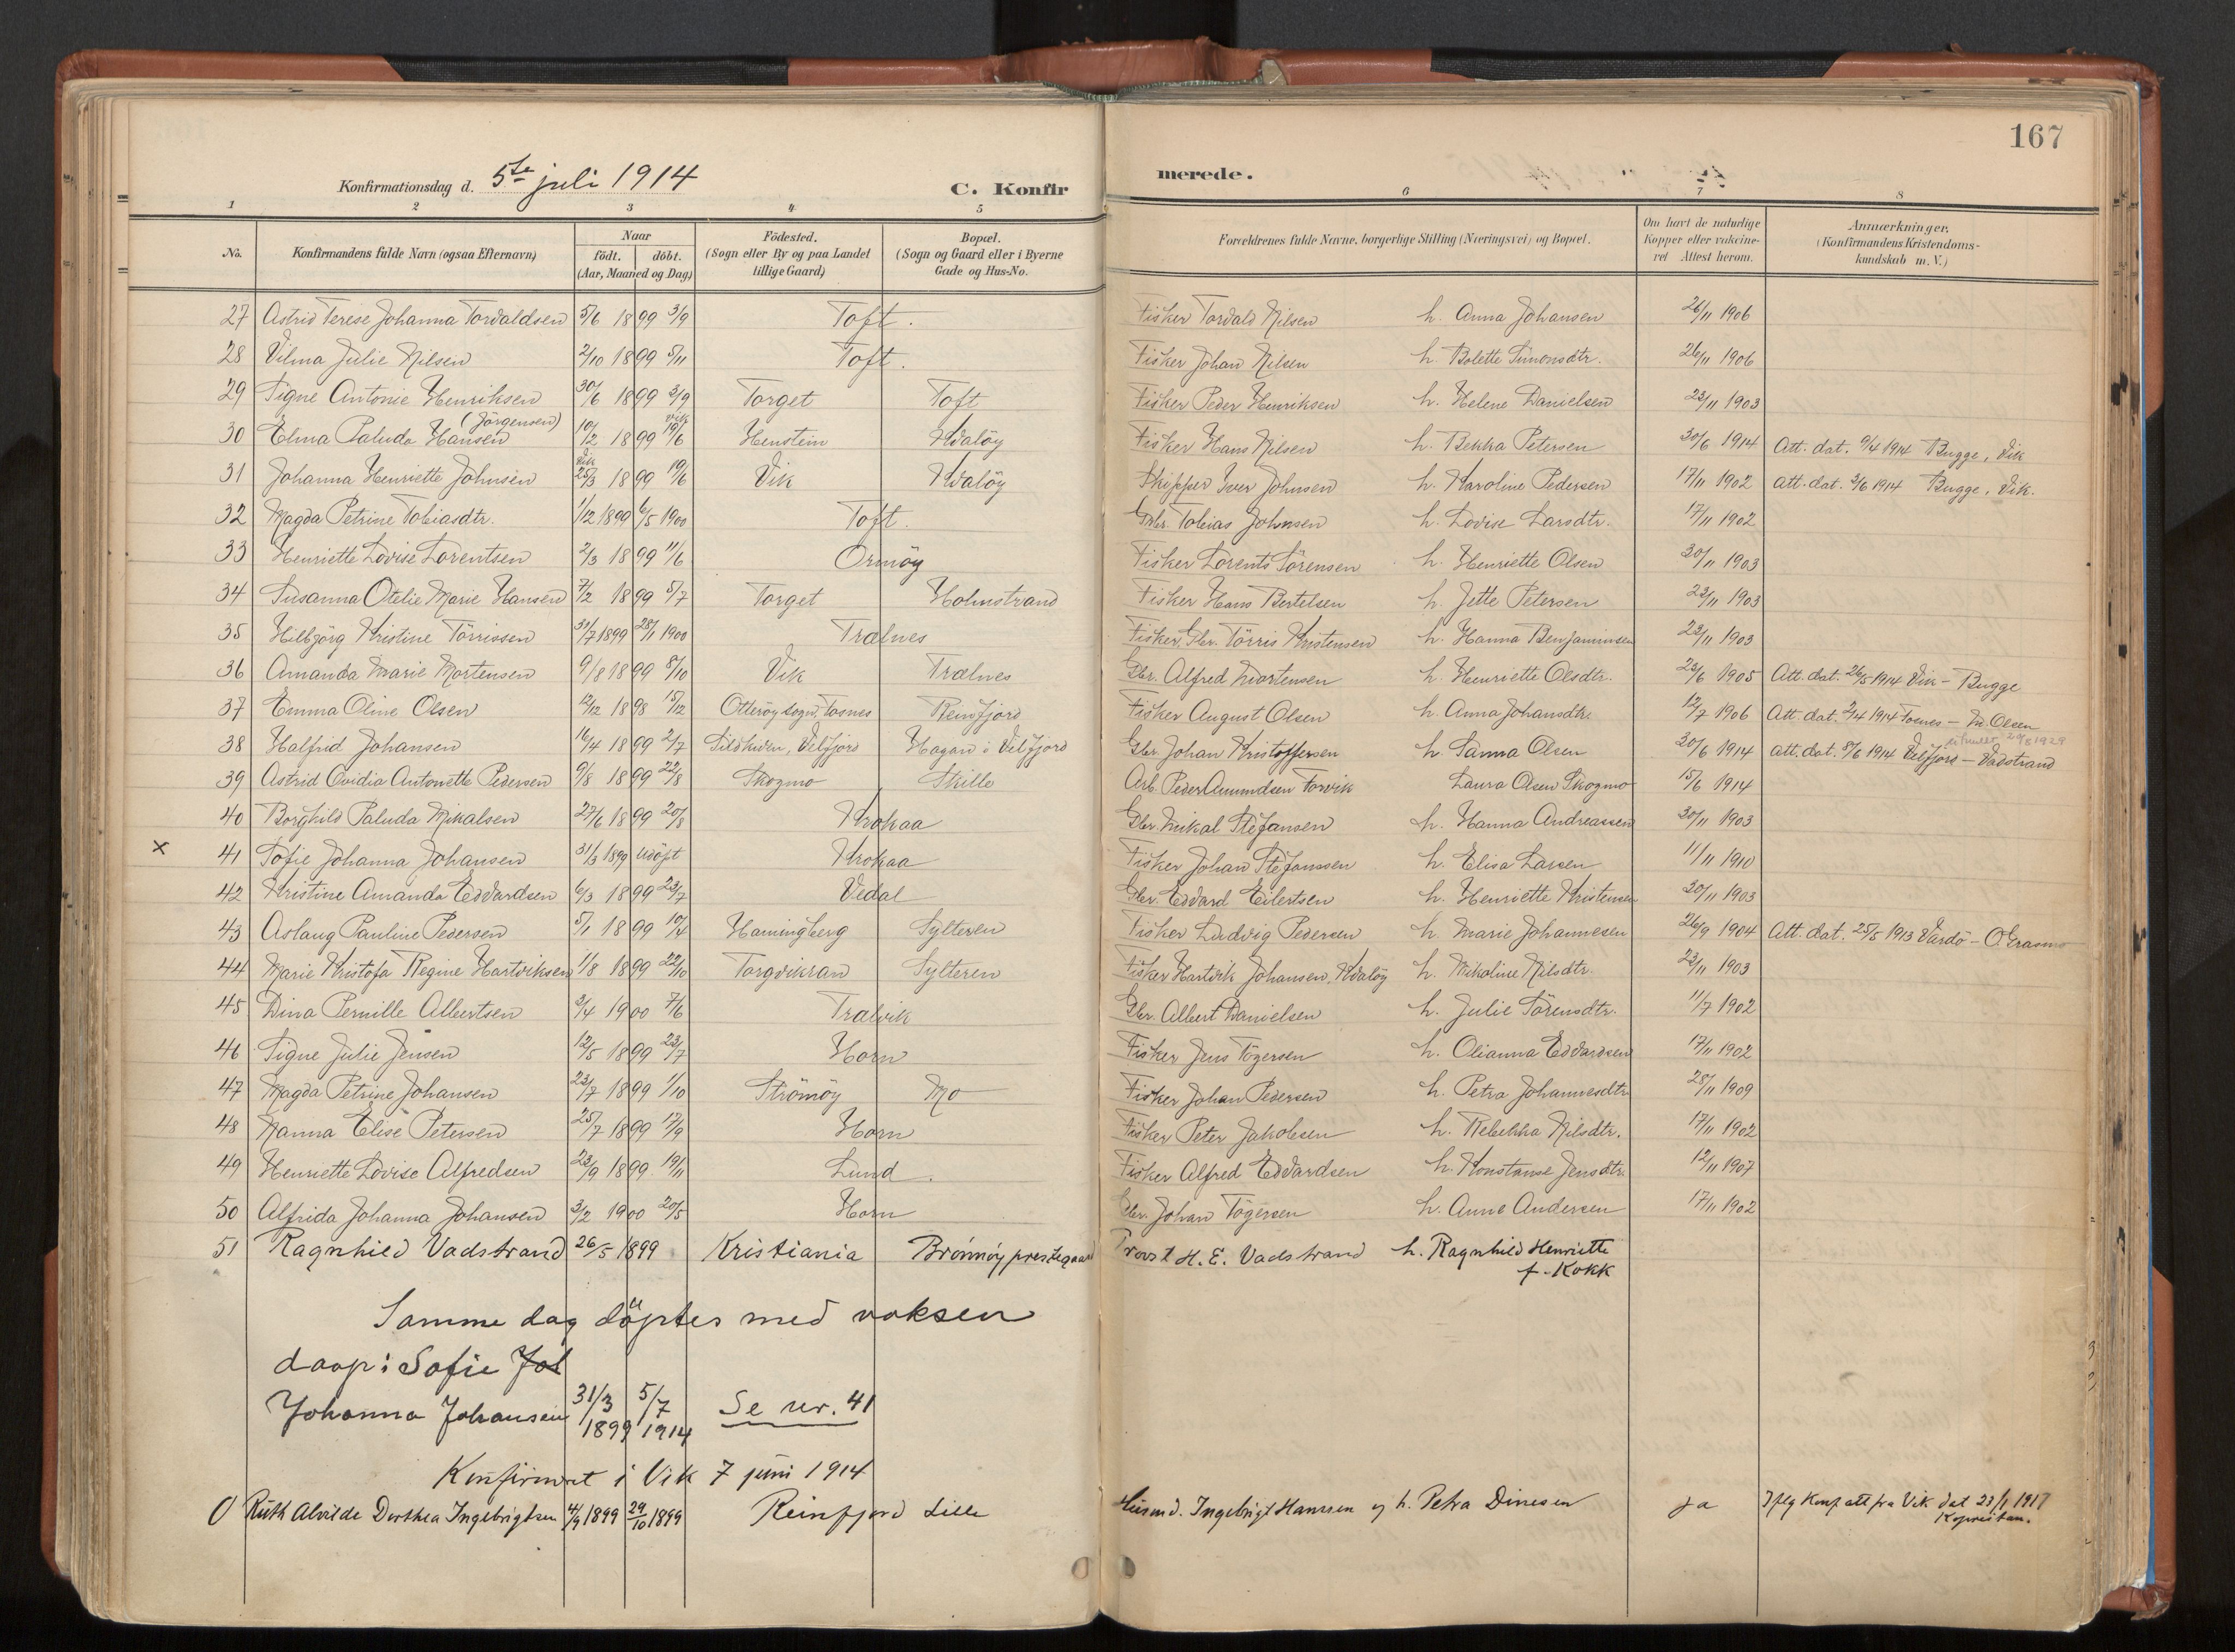 167
Konfirmationsdag d. 5te juli 1914 C. Konfir merede.
1 2 3 4 5 6 7 8
No. Konfirmandens fulde Navn (ogsaa Efternavn) Naar födt. döbt. (Aar, Maaned og Dag) Födested. (Sogn eller By og paa Landet tillige Gaard) Bopæl. (Sogn og Gaard eller i Byerne Gade og Hus-No. Forældrenes fulde Navne, borgerlige Stilling (Næringsvei) og Bopæl. Om havt de naturlige Kopper eller vakcineret Attest herom. Anmærkninger. (Konfirmandens Kristendomskundskab m. V.)
27 Astrid Terese Johanna Torvaldsen 5/6 1899 3/9 Toft. Fisker Torvald Nilsen h. Anna Johansen 26/11 1906
28 Vilma Julie Nilsen 2/10 1899 5/11 Toft. Fisker Johan Nilsen h. Bolette Simonsdtr. 26/11 1906
29 Signe Antonie Henriksen 30/6 1899 3/9 Torget Toft Fisker Peder Henriksen h. Helene Danielsen 23/11 1903
30 Elma Paluda Hansen (Jörgensen) 10/2 1899 Vik 19/6 Henstein Hvalöy Fisker Hans Nilsen h. Bekka Petersen 30/6 1914 Att. dat. 9/4 1914 Bugge, Vik
31 Johanna Henriette Johnsen Vik 25/3 1899 19/6 Vik Hvalöy Skipper Iver Johnsen h. Karoline Pedersen 17/11 1902 Att. dat. 3/6 1914 Bugge, Vik.
32 Magda Petrine Tobiasdtr. 1/12 1899 6/5 1900 Toft. Gbr. Tobias Johnsen h. Lovise Larsdtr. 17/11 1902
33 Henriette Lovise Lorentsen 2/3 1899 11/6 Ormöy Fisker Lorents Sörensen h. Henriette Olsen 30/11 1903
34 Susanna Otelie Marie Hansen 7/2 1899 5/7 Torget Holmstrand Fisker Hans Bertelsen h. Jette Petersen 23/11 1903
35 Hilbjörg Kristine Törrissen 31/7 1899 28/1 1900 Trælnes Fisker, Gbr. Törris Kristensen h. Hanna Benjaminsen 23/11 1903
36 Amanda Marie Mortensen 9/8 1899 8/10 Vik Trælnes Gbr. Alfred Mortensen h. Henriette Olsdtr. 23/6 1905 Att. dat. 26/5 1914 Vik - Bugge
37 Emma Oline Olsen 12/12 1898 15/12 Otteröy sogn, Fosnes Reinfjord Fisker August Olsen h. Anna Johansdtr. 12/7 1906 Att. dat. 2/4 1914 Fosnes - M. Olsen
38 Halfrid Johansen 16/4 1899 2/7 Sildhuken, Velfjord Hagan i Velfjord Gbr. Johan Kristoffersen h. Sanna Olsen 30/6 1914 att. dat. 8/6 1914 Velfjord - Vadstrand
29/8 1929
39 Astrid Ovidia Antonette Pedersen 9/8 1899 22/8 Skogmo Skille Arb. Peder Amundsen Torvik Laura Olsen Skogmo 15/6 1914
40 Borghild Paluda Mikalsen 27/6 1899 20/8 Krokaa Gbr. Mikal Stefansen h. Hanna Andreassen 30/11 1903
x 41 Sofie Johanna Johansen 31/3 1899 Udöpt Krokaa Fisker Johan Stefanssen h. Elisa Larsen 11/11 1910
42 Kristine Amanda Edvardsen 6/3 1899 23/7 Vedal Gbr. Edvard Eilertsen h. Henriette Kristensen 30/11 1903
43 Aslaug Pauline Pedersen 5/1 1899 10/4 Hamingberg Sylteren Fisker Ludvig Pedersen h. Marie Johannesen 26/9 1904 Att. dat. 25/5 1913 Vardö - O Grasmo
44 Marie Kristofa Regine Hartviksen 1/8 1899 22/10 Torgvikran Sylteren Fisker Hartvik Johansen, Hvalöy h. Nikoline Nilsdtr. 23/11 1903
45 Dina Pernille Albertsen 3/4 1900 7/6 Trælvik Gbr. Albert Danielsen h. Julie Sörensdtr. 11/7 1902
46 Signe Julie Jensen 12/5 1899 23/7 Horn Fisker Jens Tögersen h. Olianna Edvardsen 17/11 1902
47 Magda Petrine Johansen 23/7 1899 1/10 Strömöy Mo Fisker Johan Pedersen h. Petra Johannesdtr. 28/11 1909
48 Nanna Elise Petersen 25/7 1899 17/9 Horn Fisker Peter Jakobsen h. Rebekka Nilsdtr. 17/11 1902
49 Henriette Lovise Alfredsen 23/9 1899 19/11 Lund. Fisker Alfred Edvardsen h. Konstanse Jensdtr. 12/11 1907
50 Alfrida Johanna Johansen 3/2 1900 20/5 Horn Gbr. Johan Tögersen h. Anne Andersen 17/11 1902
51 Ragnhild Vadstrand 26/5 1899 Kristiania Brönnöy prestegaard Provst H. E. Vadstrand h. Ragnhild Henriette
f. Kokk
Samme dag döptes med voksen
daap: Sofie Joh
Johanna Johansen 31/3 1899 5/7 1914 Se nr. 41
Konfirmert i Vik 7 juni 1914
0 Ruth Alvilde Dorthea Ingebrigtsen 4/9 1899 29/10 1899 Reinfjord Lille Husmd. Ingebrigt Hanssen og h. Petra Dinesen ja Iflg Konf att fra Vik dat 23/1 1917